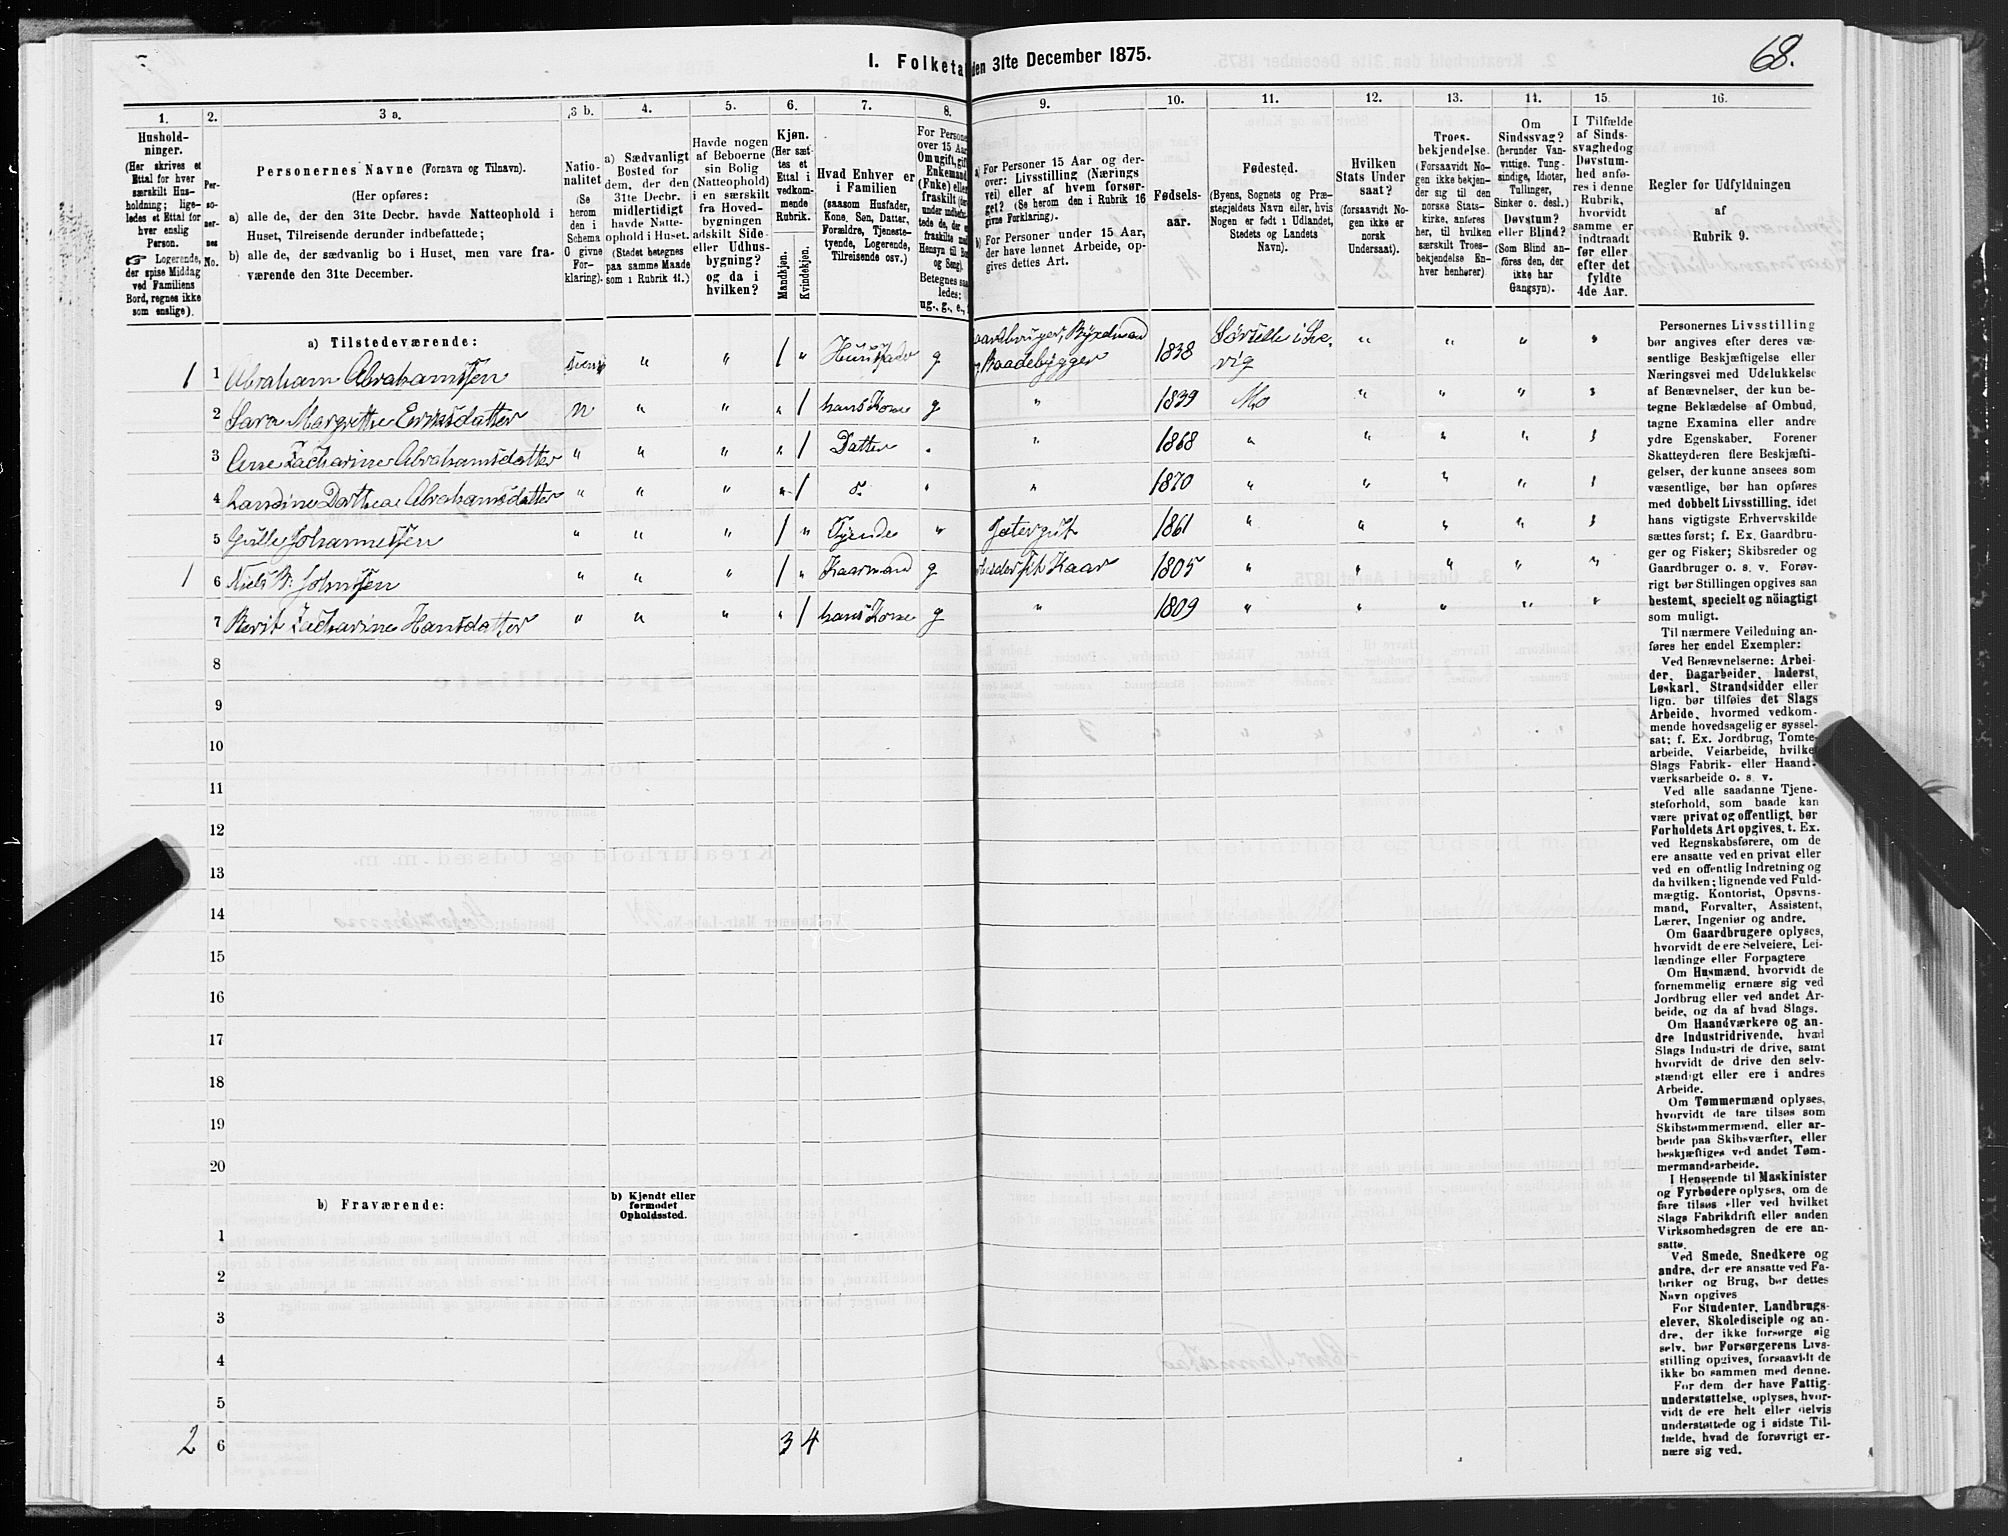 68.
I. Folketa
den 31te December 1875.
1.
2.
3 a.
3 b.
4.
5.
6.
7.
8.
9.
10.
11.
12.
13.
14.
15.
16.
Hushold-
ninger.
(Her skrives et
Ettal for hver
særskilt Hus-
holdning; lige-
ledes et Ettal for
hver enslig
Person.
☞ Logerende,
der spise Middag
ved Familiens
Bord, regnes ikke
som enslige).
Per-
so-
ner-
nes
No.
Personernes Navne (Fornavn og Tilnavn).
(Her opføres:
a) alle de, der den 31te Decbr. havde Natteophold i
Huset, Tilreisende derunder indbefattede;
b) alle de, der sædvanlig bo i Huset, men vare fra-
værende den 31te December.
Natio-
nalitet
(Se
herom
den i
Schema
O givne
For-
klaring).
a) Sædvanligt
Bosted for
dem, der den
31te Decbr.
midlertidigt
havde Natte-
ophold i Huset.
(Stedet betegnes
paa samme Maade
som i Rubrik 11.)
Havde nogen
af Beboerne
sin Bolig
(Natteophold)
i en særskilt
fra Hoved-
bygningen
adskilt Side-
eller Udhus-
bygning?
og da i
hvilken?
Kjøn.
(Her sæt-
tes et
Ettal i
vedkom-
mende
Rubrik.
Mandkjøn.
Kvindekjøn.
Hvad Enhver er
i Familien
(saasom Husfader,
Kone, Søn, Datter,
Forældre, Tjeneste-
tyende, Logerende,
Tilreisende osv.)
For Persone
over 15 Aar
Om ugift, gift
Enkemand
(Enke) eller
fraskilt (der-
under indbefat-
tede de, der e
fraskilte med
Hensyn til Bo
og Seng).
Betegnes saa
ledes:
ug., g., e.,
a) For Personer 15 Aar og der-
over: Livsstilling (Nærings
vei) eller af hvem forsør-
get? (Se herom den i Rubrik 16
givne Forklaring).
b) For Personer under 15 Aar,
der have lønnet Arbeide, op-
gives dettes Art.
Fødsels-
aar.
Fødested.
(Byens, Sognets og Præ-
stegjeldets Navn eller, hvis
Nogen er født i Udlandet,
Stedets og Landets
Navn).
Hvilken
Stats Under
saat?
(forsaavidt No-
gen ikke er
norsk
Undersaat).
Troes-
bekjendelse.
(Forsaavidt No-
gen ikke bekjen-
der sig til den
norske Stats-
kirke, anføres
her, til hvilken
særskilt Troes-
bekjendelse En-
hver henhører)
Om
Sindssvag?
(herunder Van-
vittige, Tung-
sindige, Idioter,
Tullinger,
Sinker o. desl.)
Døvstum?
eller Blind?
(Som Blind an-
føres den, der
ikke har
Gangsyn).
I Tilfælde
af Sinds-
svaghedog
Døvstum-
hed anfø-
res i denne
Rubrik,
hvorvidt
samme er
indtraadt
før eller
efter det
fyldte
4de Aar.
Regler for Udfyldningen
af
Rubrik 9.
a) Tilstedeværende:
1 1 Abraham Abrahamssen " " 1 " Husfader g aardbruger, Byxelmand 1838 " " " "
Baadebygger vig
2 Sara Margrethe Ericsdatter n " " " 1 hans Kone g " 1839 Mo " " " "
3 Ane Zacharine Abrahamsdatter " " " " 1 Datter " " 1868 " " " " "
4 Dorthea Abrahamsdatter " " " " 1 d. " " 1870 " " " " "
5 Johannessen " " " 1 " Tjende " Jetergut 1861 " " " " "
1 6 Niels B. Johnssen " " " 1 " Kaarmand g Kaar 1805 " " " " "
7 Berit Zacharine Hansdatter " " " " 1 hans Kone g " 1809 " " " " "
8
9
10
11
12
13
14
15
16
17
18
19
20
b) Fraværende:
b) Kjendt eller
formodet
Opholdssted.
1
2
3
4
5
2 6 3 4
Personernes Livsstilling
bør angives efter deres væ-
sentlige Beskjæftigelse eller
Næringsvei med Udelukkelse
af Benævnelser, der kun be-
tegne Beklædelse af Ombud,
tagne Examina eller andre
ydre Egenskaber. Forener
Skatteyderen flere Beskjæfti-
gelser, der kunne ansees som
væsentlige, bør han opføres
med dobbelt Livsstilling, idet
hans vigtigste Erhvervskilde
sættes først; f. Ex. Gaardbru-
ger og Fisker; Skibsreder og
Gaardbruger o. s. v. Forøv-
rigt bør Stillingen opgives saa
bestemt, specielt og nöiagtigt
som muligt.
Til nærmere Veiledning an-
føres her endel Exempler:
Ved Benævnelserne: Arbei-
der, Dagarbeider, Inderst,
Løskarl, Strandsidder eller
lign. bør tilføies det Slags
Arbeide, hvormed vedkom-
mende hovedsagelig er syssel-
sat; f. Ex. Jordbrug, Tomte-
arbeide, Veiarbeide, hvilke
Slags Fabrik- eller Haand-
værksarbeide o. s. v.
Ved alle saadanne Tjene-
steforhold, som baade kan
være privat og offentligt, bør
Forholdets Art opgives, t. Ex.
ved Regnskabsførere, om de
ere ansatte ved en privat eller
ved en offentlig Indretning og
da hvilken; lignende ved Fuld-
mægtig, Kontorist, Opsyns-
mand, Forvalter, Assistent,
Lærer, Ingeniør og andre.
Om Gaardbrugere oplyses,
hvorvidt de ere Selveiere, Lei-
lændinge eller Forpagtere
Om Husmænd, hvorvidt de
fornemmelig ernære sig ved
Jordbrug eller ved andet Ar-
beide, og da af hvad Slags.
Om Haandværkere og an-
dre Industridrivende, hvad
Slags Industri de drive, samt
hvorvidt de drive den selv-
stændigt eller ere i andres
Arbeide.
Om Tømmermænd oplyses,
hvorvidt de fare tilsøs som
Skibstømmermænd, eller ar-
beide paa Skibsværfter, eller
beskjæftiges ved andet Tøm-
mermandsarbeide.
I Henseende til Maskinister
og Fyrbødere oplyses, om de
fare tilsøs eller ved hvilket
Slags Fabrikdrift eller anden
Virksomhedsgren de ere an-
satte.
Ved Smede, Snedkere og
andre, der ere ansatte ved Fa-
briker og Brug, bør dettes
Navn opgives
For Studenter, Landbrugs-
elever, Skoledisciple og an-
dre, der ikke forsørge sig
selv, bør Forsørgerens Livs-
stilling opgives, forsaavidt de
ikke bo sammen med denne.
For dem der have Fattig-
understøttelse, oplyses, hvor-
vidt de ere helt eller delvis
understøttede og i sidste Til-
fælde, hvad de forøvrigt er-
nære sig ved.